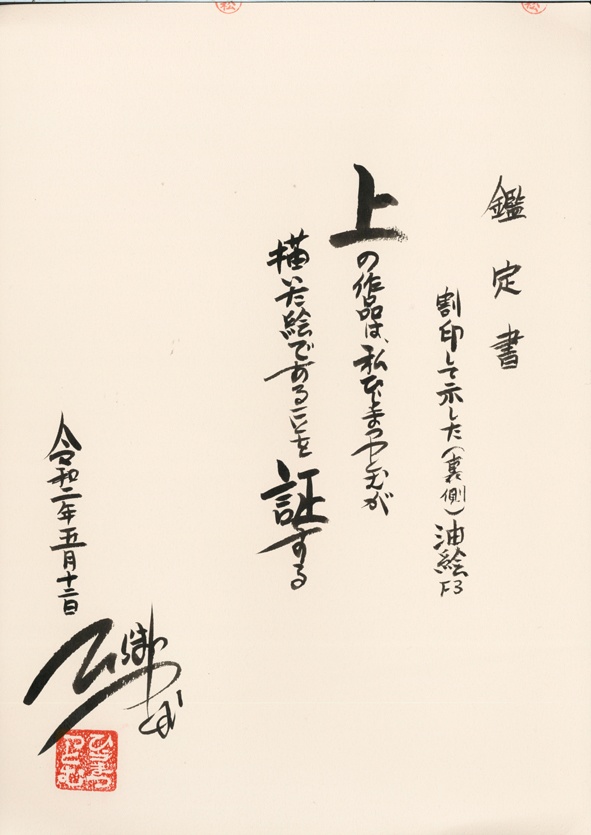 松 松
鑑定書
割印して示した(裏側)油絵F3
上の作品は、私
が
描いた絵であることを証する
令和二年五月十二日